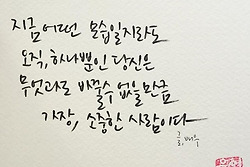 지금 어떤 모습일지라도
오직, 하나뿐인 당신은
무엇과도 바꿀수 없을만큼
가장, 소중한 사람이다